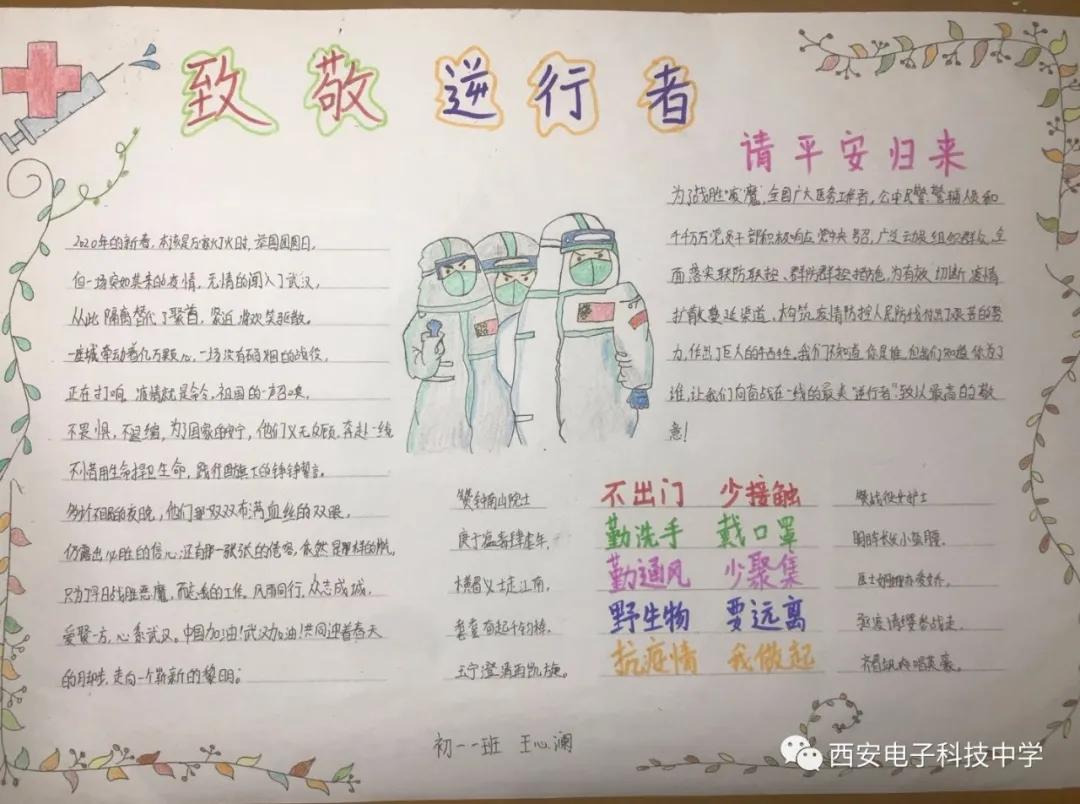 致敬逆行者
请平安归来
2020年的新春,本该是万家灯火时,举国团圆日,
但一场突如其来的疫情,无情的闯入了武汉,
从此隔离替代了聚首,
一座城牵动着亿万颗心,一场没有硝烟的战役,
正在打响。疫情就是命令,祖国的一声召唤,
不畏惧,不退缩,为了国家的安宁,他们义无反顾,奔赴一线
不惜用生命捍卫生命,践行国旗下的铮铮誓言。
多少个不眠的夜晚,他们那双双布满血丝的双眼,
仍露出必胜的信心,还有那一张张的倦容,依然是
只为了早日战胜恶魔,而忘我的工作。风雨同行,众志成城,
爱聚一方,心系武汉。中国加油!武汉加油!共同迎着春天
的脚步,走向一个崭新的黎明。
为了战胜“疫魔”,全国广大医务工作者,公安民警、警辅人员和
千千万万党员干部积极响应党中央号召,广泛动员组织群众,全
面落实联防联控、群防群控措施,为有效切断疫情
扩散蔓延渠道、构筑疫情防控人民防线付出了艰苦的努
力,作出了巨大的牺牲。我们不知道你是谁,但我们知道你为了
谁,让我们向奋战在一线的最美“逆行者”致以最高的敬
意!
赞钟南山院士
庚子猛毒肆虐年,
横眉义士走江南。
玉宇澄清再凯旋。
不出门 少接触
勤洗手 戴口罩
勤通风 少聚集
野生物 要远离
抗疫情 我做起
赞战役女护士
医士姗姗亦爱娇。
齐唱
初一一班 王心澜
西安电子科技中学